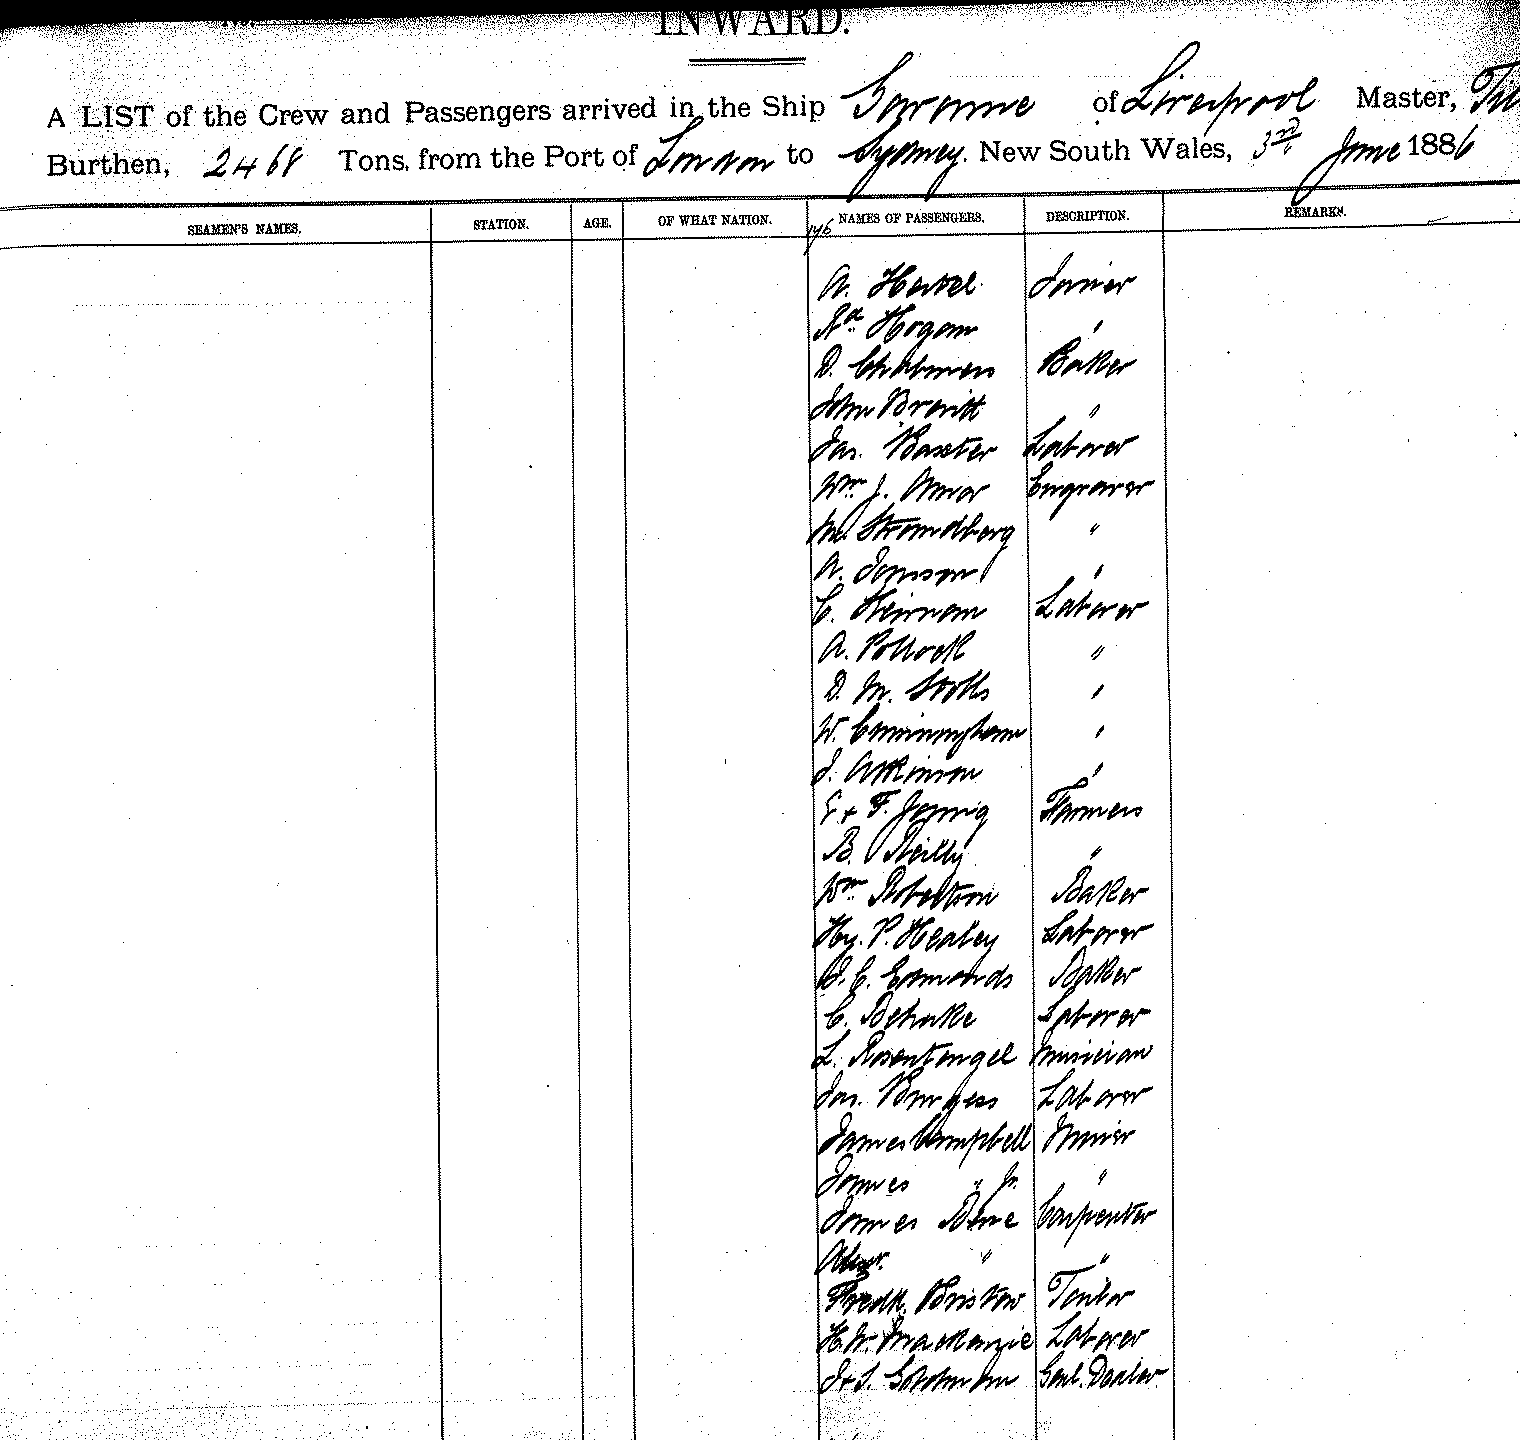 INWARD.
A LIST of the Crew and Passengers arrived in the Ship Garonne of Liverpool Master,
Burthen, 2468 Tons, from the Port of London to Sydney. New South Wales, 3rd June 1886
SEAMEN'S NAMES. STATION. AGE. OF WHAT NATION. NAMES OF PASSENGERS. DESCRIPTION. REMARKS.
A. Hertel Joiner
Rd. Hogan "
D. Chalmers Baker
John "
Jas. Baxter Laborer
Wm. J. Engraver
Strandberg "
A. "
C. Laborer
A. Pollock "
D. M. Stotts "
W. Cunningham "
J. Atkinson "
& F. Farmers
B. Reilly "
Wm Robertson Baker
Hy. P. Healey Laborer
J. C. Edmonds Baker
C. Behnke Laborer
L. Rosentengel Musician
Jas. Burgess Laborer
James Campbell Miner
James " Jr. "
James Carpenter
Alexr. " "
Fredk. Bristow Tailor
H. W. Mackenzie Laborer
J & S. Goldman Genl. Dealer